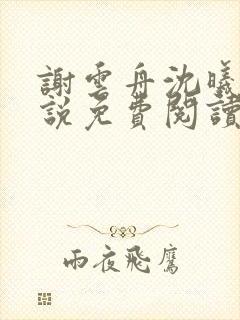 謝雲舟沈曦
說免費閱讀
雨夜飛鷹